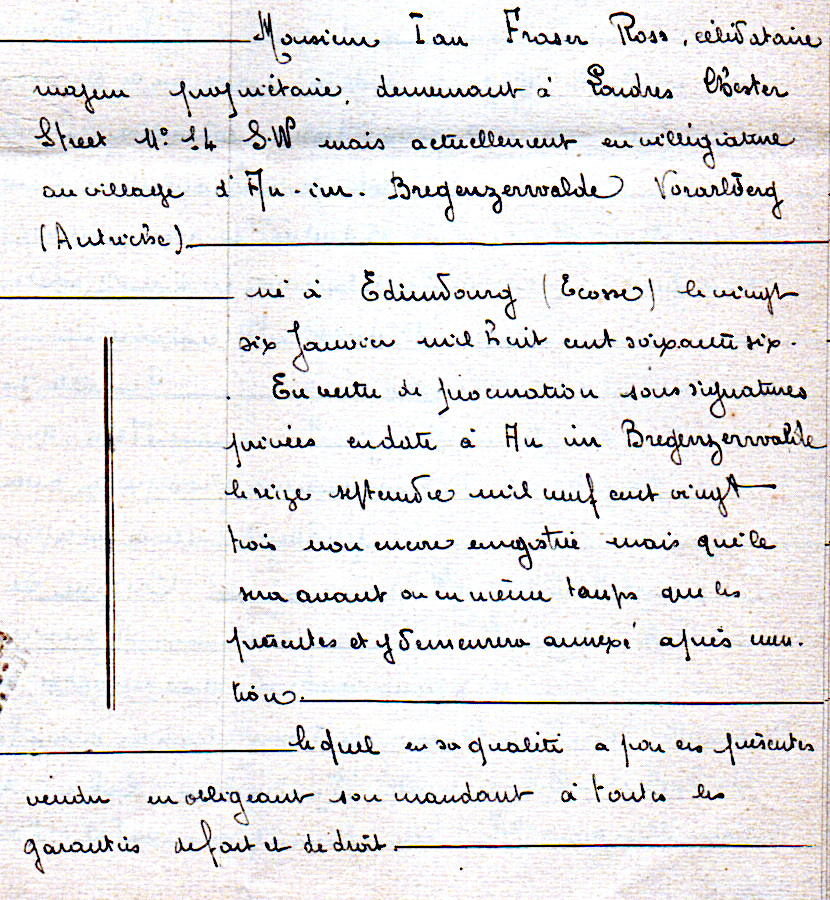 Monsieur Ian Fraser Ross, célibataire
majeur propriétaire, demeurant à Londres Chester
Street N° 14 SW mais actuellement en villégiature
au village d'Au-im-Bregenzerwalde Vorarlberg
(Autriche)
né à Edimbourg (Ecosse) le vingt
six Janvier mil huit cent soixante six.
En vertu de procuration sous signatures
privées en date à Au im Bregenzerwalde
le seize septembre mil neuf cent vingt
trois non encore enregistrée mais qui le
sera avant ou en même temps que les
présentes et y demeurera annexé après men-
tion.
lequel en sa qualité a par ces présentes
vendu en obligeant son mandant à toutes les
garanties de fait et de droit.